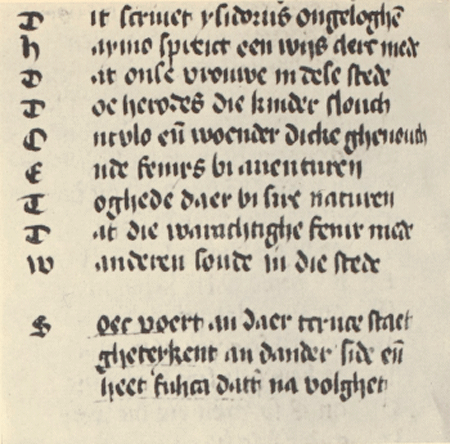 D it scriuet ysidorus ongeloghē
h aymo spreict een wijs clerc mede
D at onse vrouwe in dese stede
D oe herodes die kinder slouch
O ntvlo eñ woender dicke ghenouch
E nde fenixs bi auenturen
T oghede daer bi sire naturen
D at die warachtighe fenix mede
w anderen soude in die stede
S oec voert an daer tcruce staet
gheteykent an dander side eñ
heet fulica datt na volghet